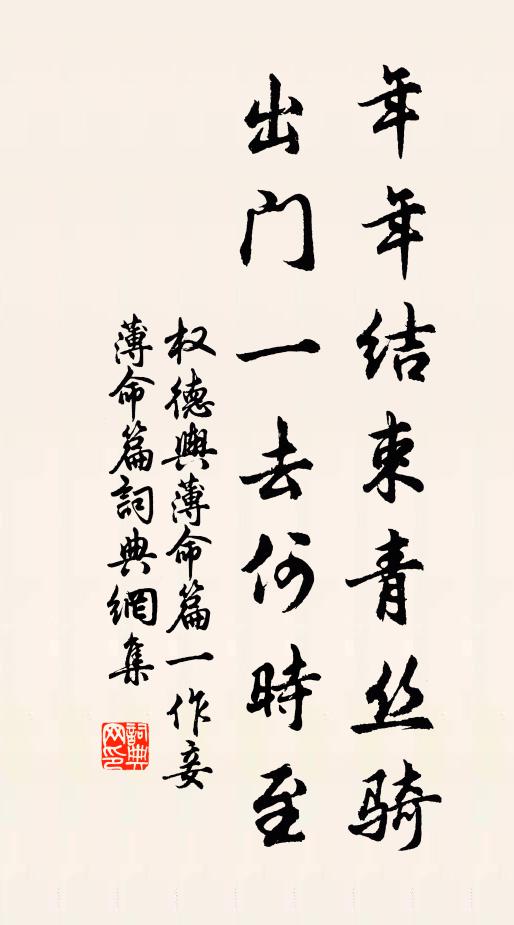 年年结束青丝骑
出门一去何時至
权德與薄命篇一作妾
薄命篇詞典網集
詞典
网印